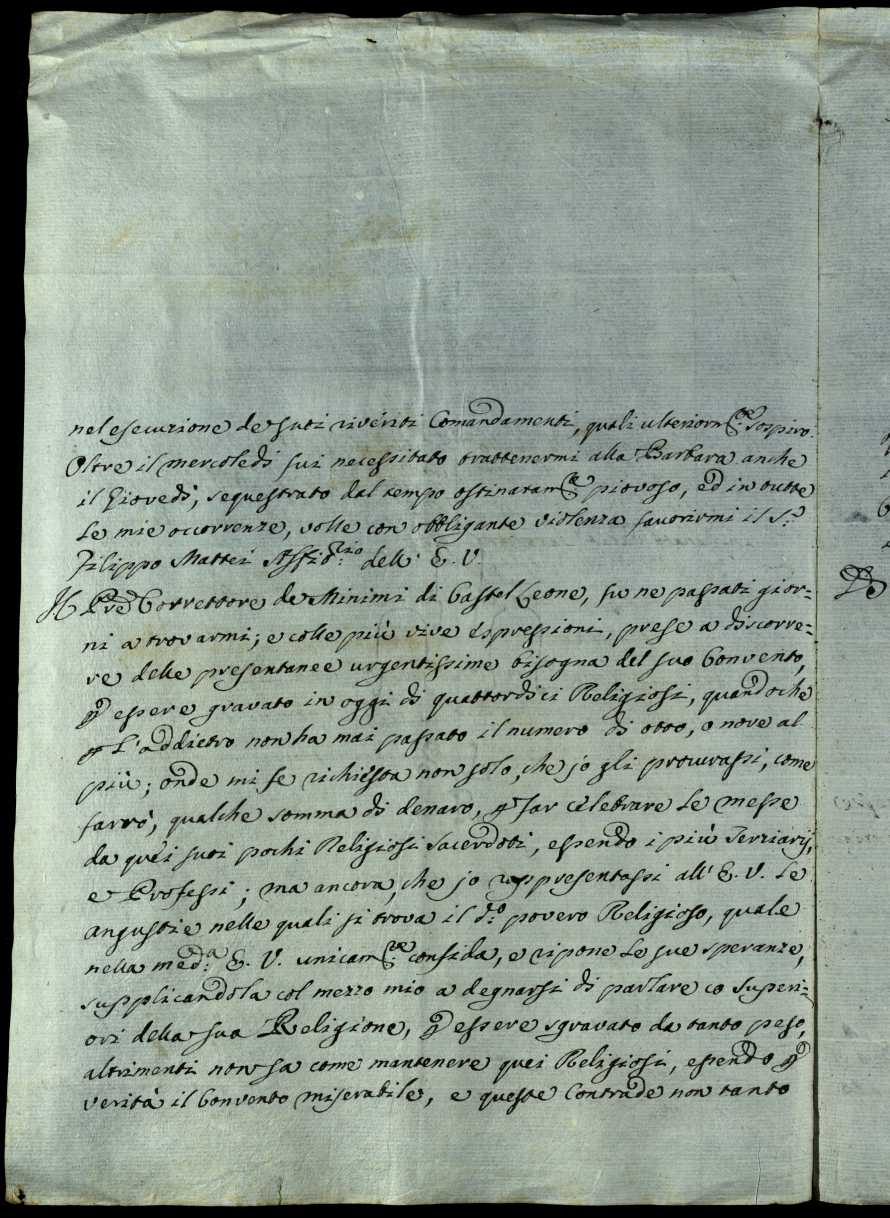 nel esecuzione de suoi riveriti Comandamenti, quali ulteriorm.te sospiro.
Oltre il mercoledì fui necessitato trattenermi alla Barbara anche
il Giovedì, sequestrato dal tempo ostinatam.te piovoso, ed in tutte
le mie occorrenze, volle con obbligante violenza favorirmi il S.r
Filippo Mattei Affid.rio dell' E. V.
Il Pre Correttore de Minimi di Castel Leone, fu ne passati gior=
ni a trovarmi; e colle più vive espressioni, prese a discorre=
re delle presentanee urgentissime bisogna del suo Convento,
p essere gravato in oggi di quattordici Religiosi, quandoche
p l'addietro non ha mai passato il numero di otto, o nove al
più; onde mi fe richiesta non solo, che io gli procurassi, come
farrò, qualche somma di denaro, p far celebrare le messe
da quei suoi pochi Religiosi Sacerdoti, essendo i più Terziarij,
e Professi; ma ancora, che jo rappresentassi all' E. V. le
angustie nelle quali si trova il d.o povero Religioso, quale
nella med.a E. V. unicam.te confida, e ripone le sue speranze,
supplicandola col mezzo mio a degnarsi di parlare co superi=
ori della sua Religione, p essere sgravato da tanto peso,
altrimenti non sa come mantenere quei Religiosi, essendo p
verità il Convento miserabile, e queste Contrade non tanto